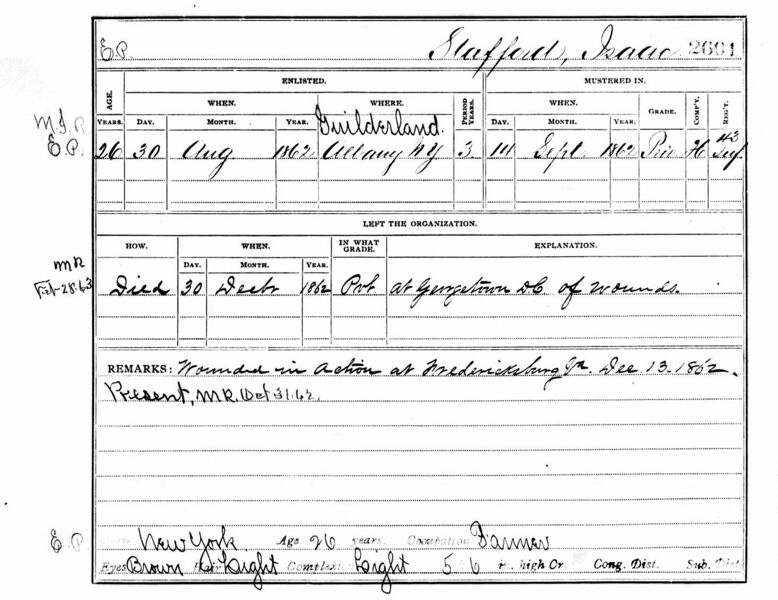 E.P. Stafford, Isaac 2601
ENLISTED. MUSTERED IN.
AGE. WHEN. WHERE. PERIOD WHEN. GRADE. COMP'Y. REG'T.
YEARS. DAY. MONTH. YEAR. YEARS. DAY. MONTH. YEAR.
M.I.R Guilderland. 43
E.P. 26 30 Aug 1862 Albany NY 3 14 Sept. 1862 Priv H Inf
LEFT THE ORGANIZATION.
HOW. WHEN. IN WHAT GRADE. EXPLANATION.
DAY. MONTH. YEAR.
MR
Feb-28-63 Died 30 Decbr 1862 Pvt at Georgetown DC of wounds.
REMARKS: Wounded in Action at Fredericksburg Va. Dec 13. 1862.
Present, M.R. Oct 31, 62.
E.P. New York Age 26 years. Occupation Farmer
Eyes Brown Hair Light Complex Light 5 6 in. high Cr Cong. Dist. Sub. Dist.